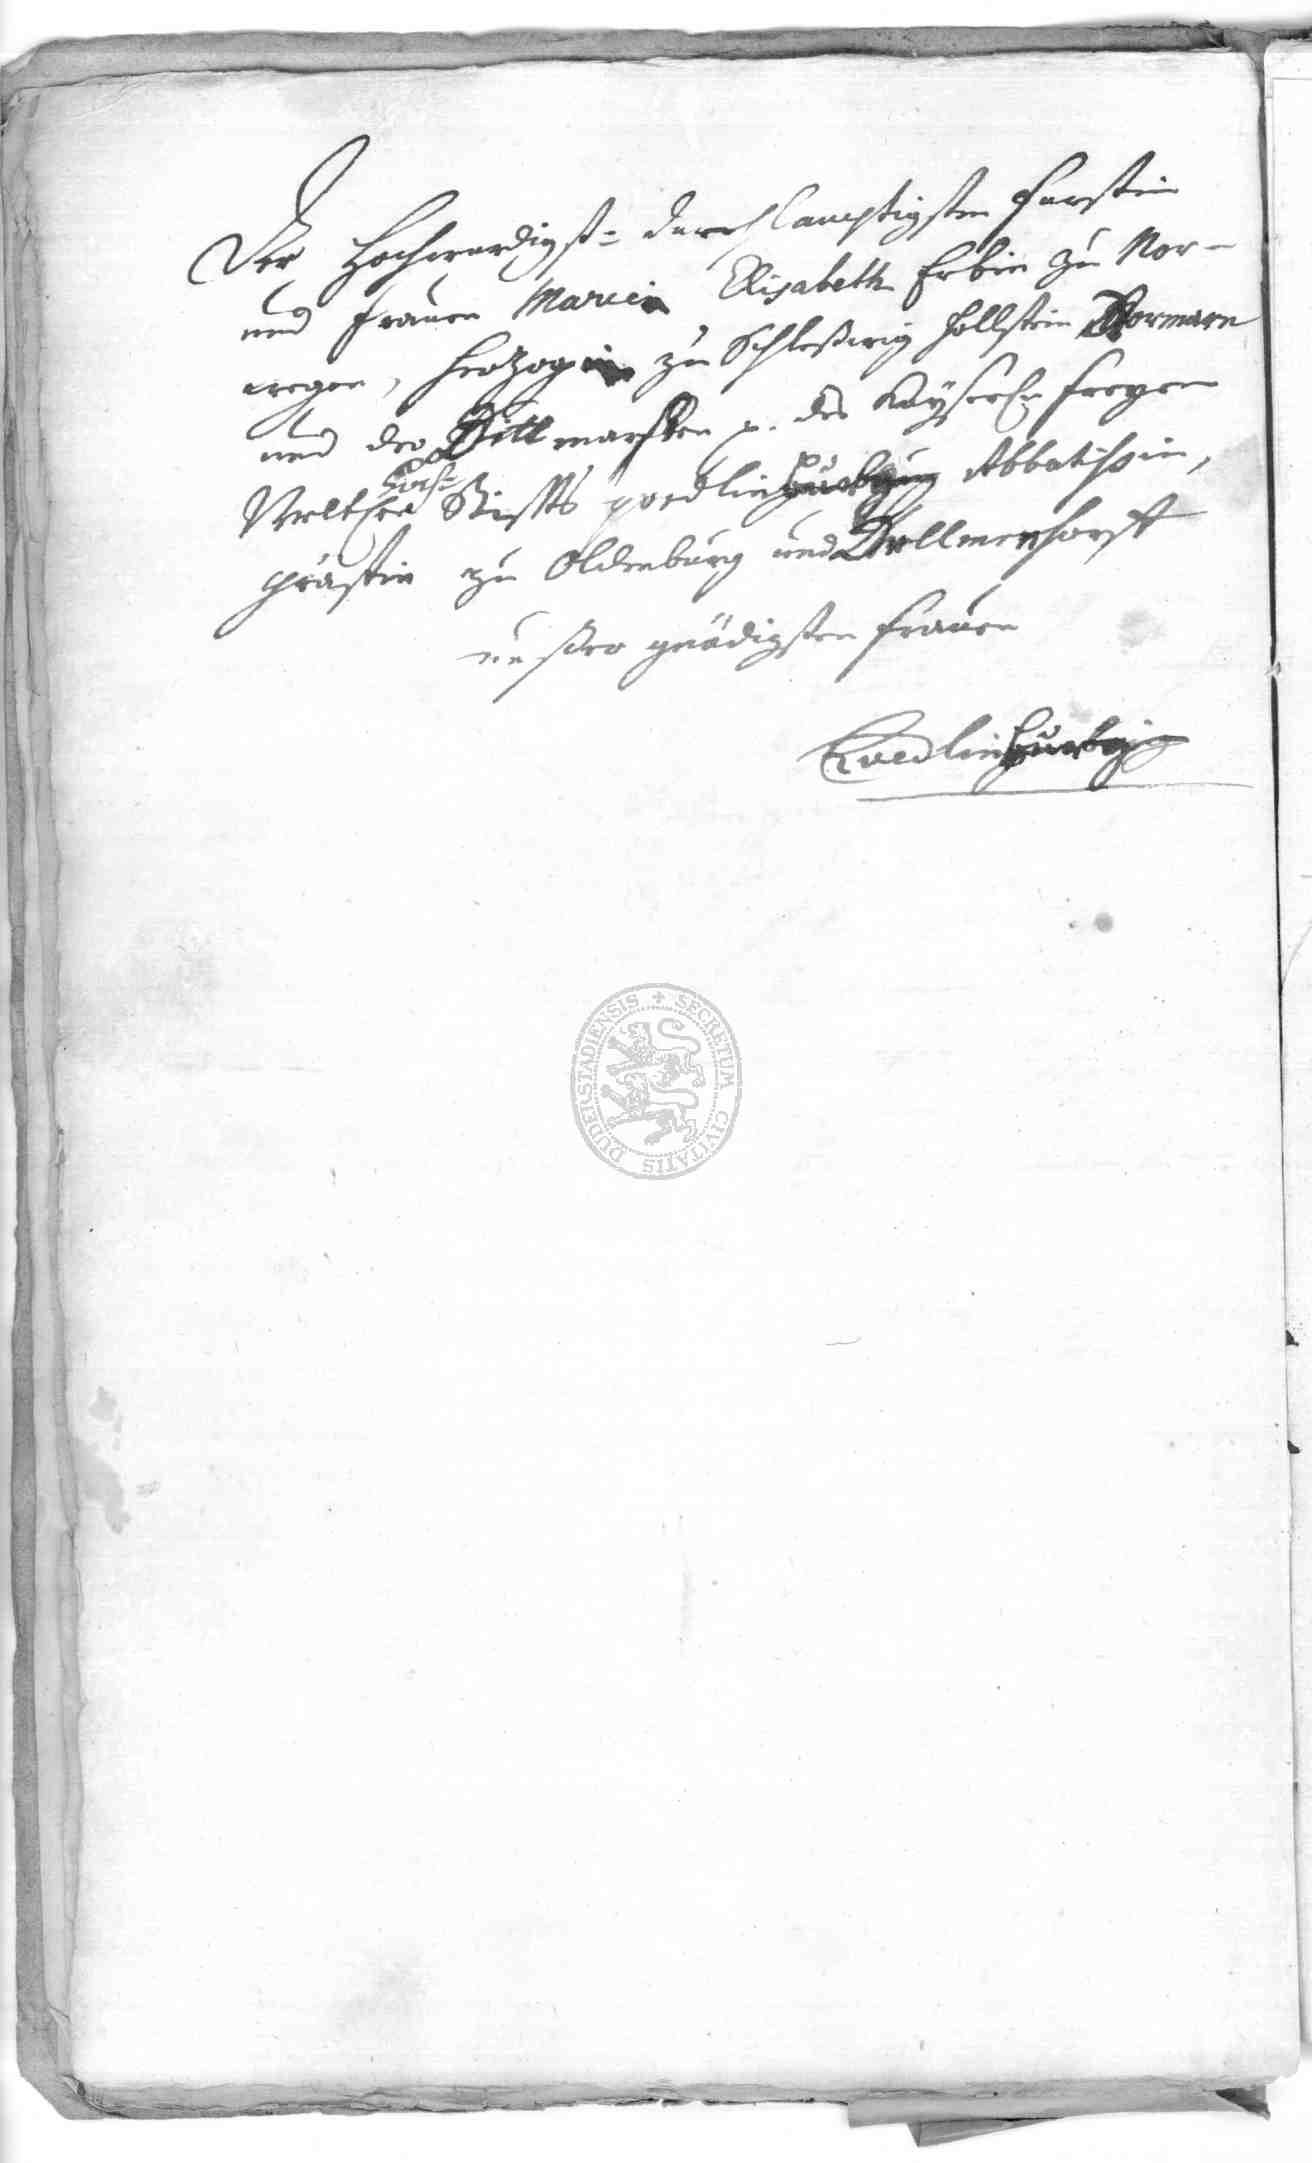 Der Hochwürdigst- durchlauchtigsten Fürstin
und Frauen Marien Elisabeth Erbin zu Nor-
wegen, Hertzogin zu Schleßwig Hollstein Stormarn
und der Ditt marschen p. des Kayserl. freyen
Weltlichen Stiffts quedlinburg Abbatißin,
Gräffin zu Oldenburg und Dellmenhorst
unßer gnädigsten Frauen
Quedlinburg
DUDERSTADIENSIS + SECRETUM CIVITATIS